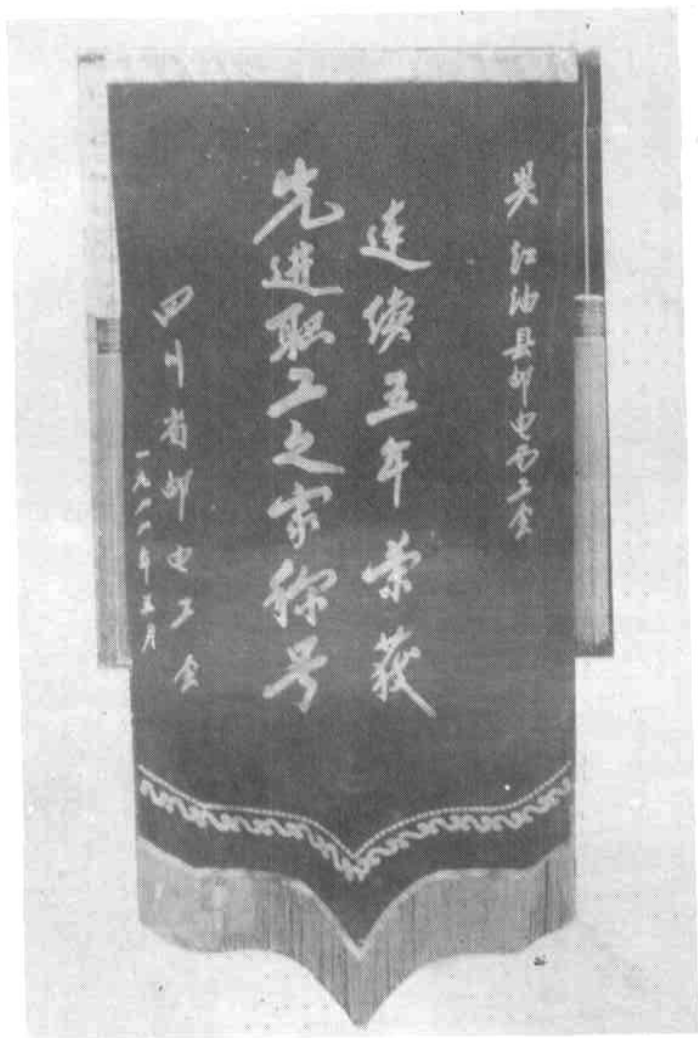 奖 江油县邮电局工会
连续五年荣获
先进职工之家称号
四川省邮电工会
一九八八年五月